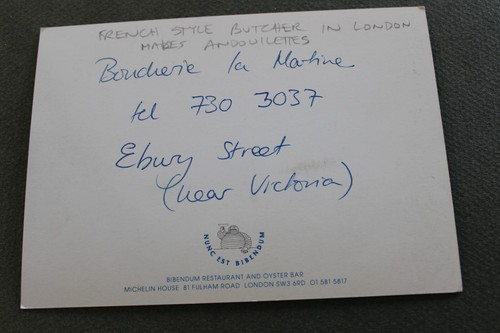 FRENCH STYLE BUTCHER IN LONDON
MAKES ANDOUILETTES
Boucherie la Martine
tel 730 3037
Ebury Street
(near Victoria)
NUNC EST BIBENDUM
BIBENDUM RESTAURANT AND OYSTER BAR
MICHELIN HOUSE 81 FULHAM ROAD LONDON SW3 6RD 01 581 5817